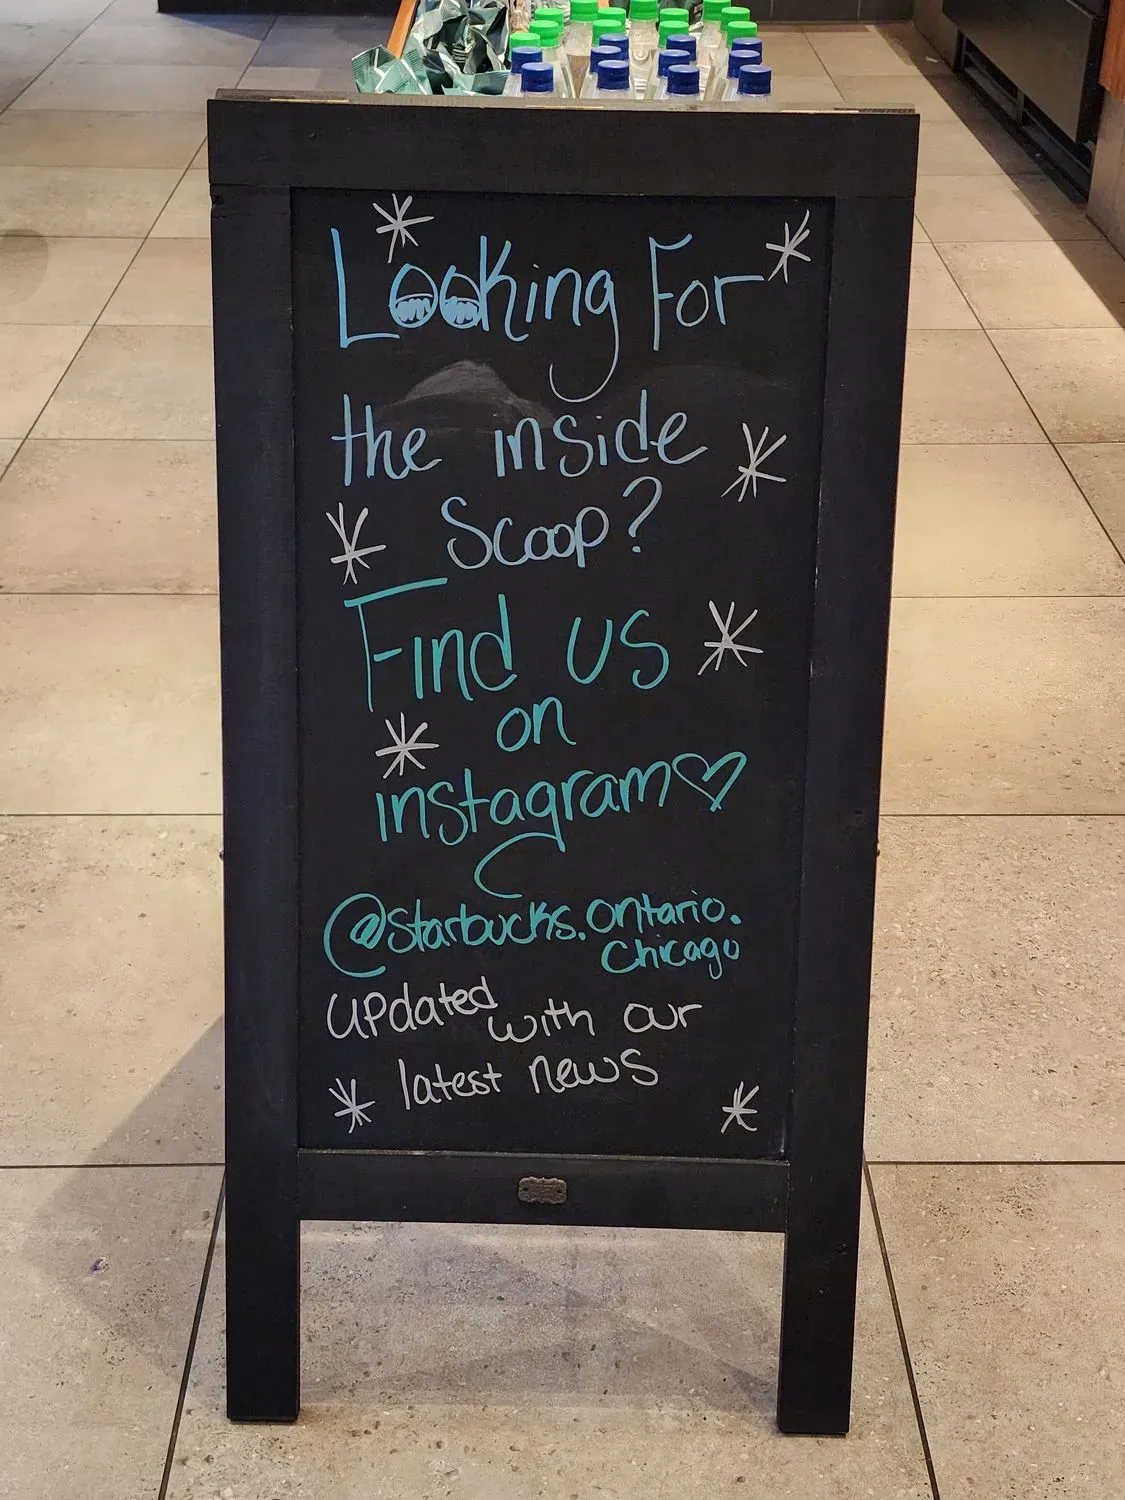 Looking For
the inside
Scoop?
Find us
on
instagram♡
@starbucks.ontario.
chicago
updated with our
latest news